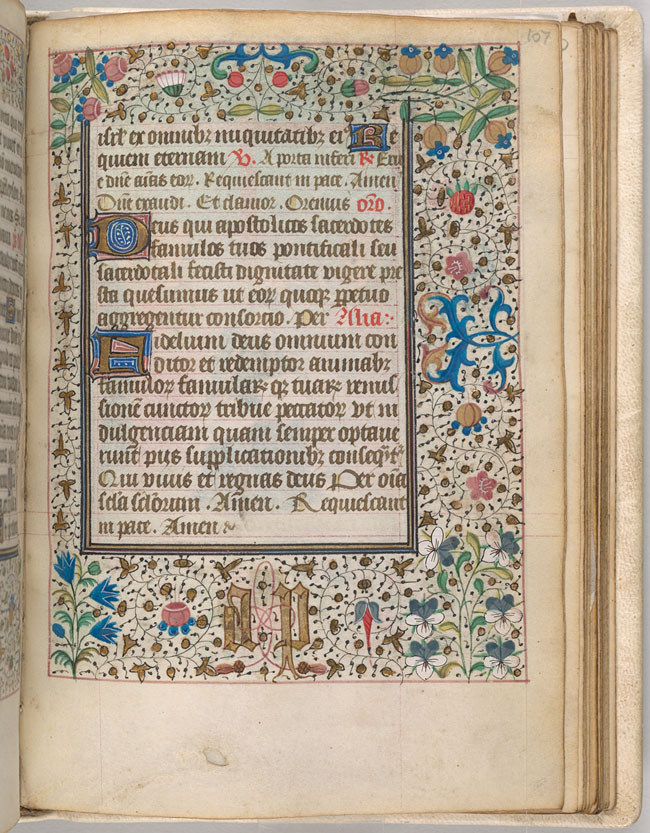 107
isrl̃ ex omnibꝫ iniquitatibꝫ eiꝰ Re
quiem eternam V̷. A porta inferi ℟ Eru
e dñe aīas eoꝝ. Requiescant in pace. Amen
Dñe exaudi. Et clamor. Oremus orõ.
Deus qui apostolicos sacerdotes
famulos tuos pontificali seu
sacerdotali fecisti dignitate vigere pre
sta quesumus ut eoꝝ quoqꝫ ꝑpetuo
aggregentur consorcio. Per Alia:
Fidelium deus omnium con
ditor et redemptor animabꝫ
famuloꝝ famulaꝝ qꝫ tuaꝝ remis
sionē cunctoꝝ tribue peccatoꝝ vt in
dulgenciam quam semper optaue
runt piis supplicationibꝫ conseqꝫt᷑
Qui viuis et regnas deus Per oīa
scl̃a scl̃orum. Amen. Requiescant
in pace. Amen
a p